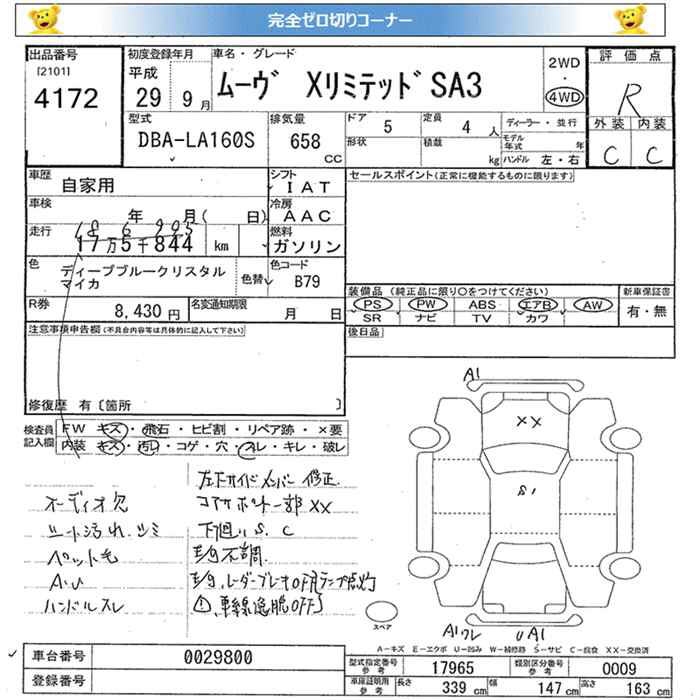 完全ゼロ切りコーナー
出品番号
[2101]
4172
初度登録年月
平成
29 年 9 月
車名・グレード
ムーヴ XリミテッドSA3
2WD
・
4WD
評価点
R
外装 内装
C C
型式
DBA-LA160S
排気量
658
CC
ドア 5
定員 4 人
形状
積載 kg
ディーラー・並行
モデル年式 年
ハンドル 左・右
車歴
自家用
シフト
IAT
セールスポイント(正常に機能するものに限ります)
車検
年 月( 日)
冷房
AAC
走行
17万5千844 km
燃料
ガソリン
色
ディープブルークリスタル
マイカ
色替
色コード
B79
装備品 (純正品に限り○をつけてください)
PS PW ABS エアB AW
SR ナビ TV カワ
新車保証書
有・無
R券
8,430 円
名変通知期限
月 日
後日品
注意事項申告欄(不具合内容等は具体的に記入して下さい)
修復歴 有〔箇所 〕
検査員
記入欄
FW キズ・飛石・ヒビ割・リペア跡・×要
内装 キズ・汚れ・コゲ・穴・スレ・キレ・破レ
オーディオ欠
シート汚れ、シミ
ペット毛
AU
ハンドルスレ
左下サイドメンバー修正.
コアサポート一部XX
下廻りS.C
E/G不調
A1
XX
S1
A1 ワレ
U A1
スペア
A-キズ E-エクボ U-凹み W-補修跡 S-サビ C-腐食 XX-交換済
車台番号
0029800
登録番号
型式指定番号
参考
17965
類別区分番号
参考
0009
車庫証明用
参考
長さ 339 cm
幅 147 cm
高さ 163 cm